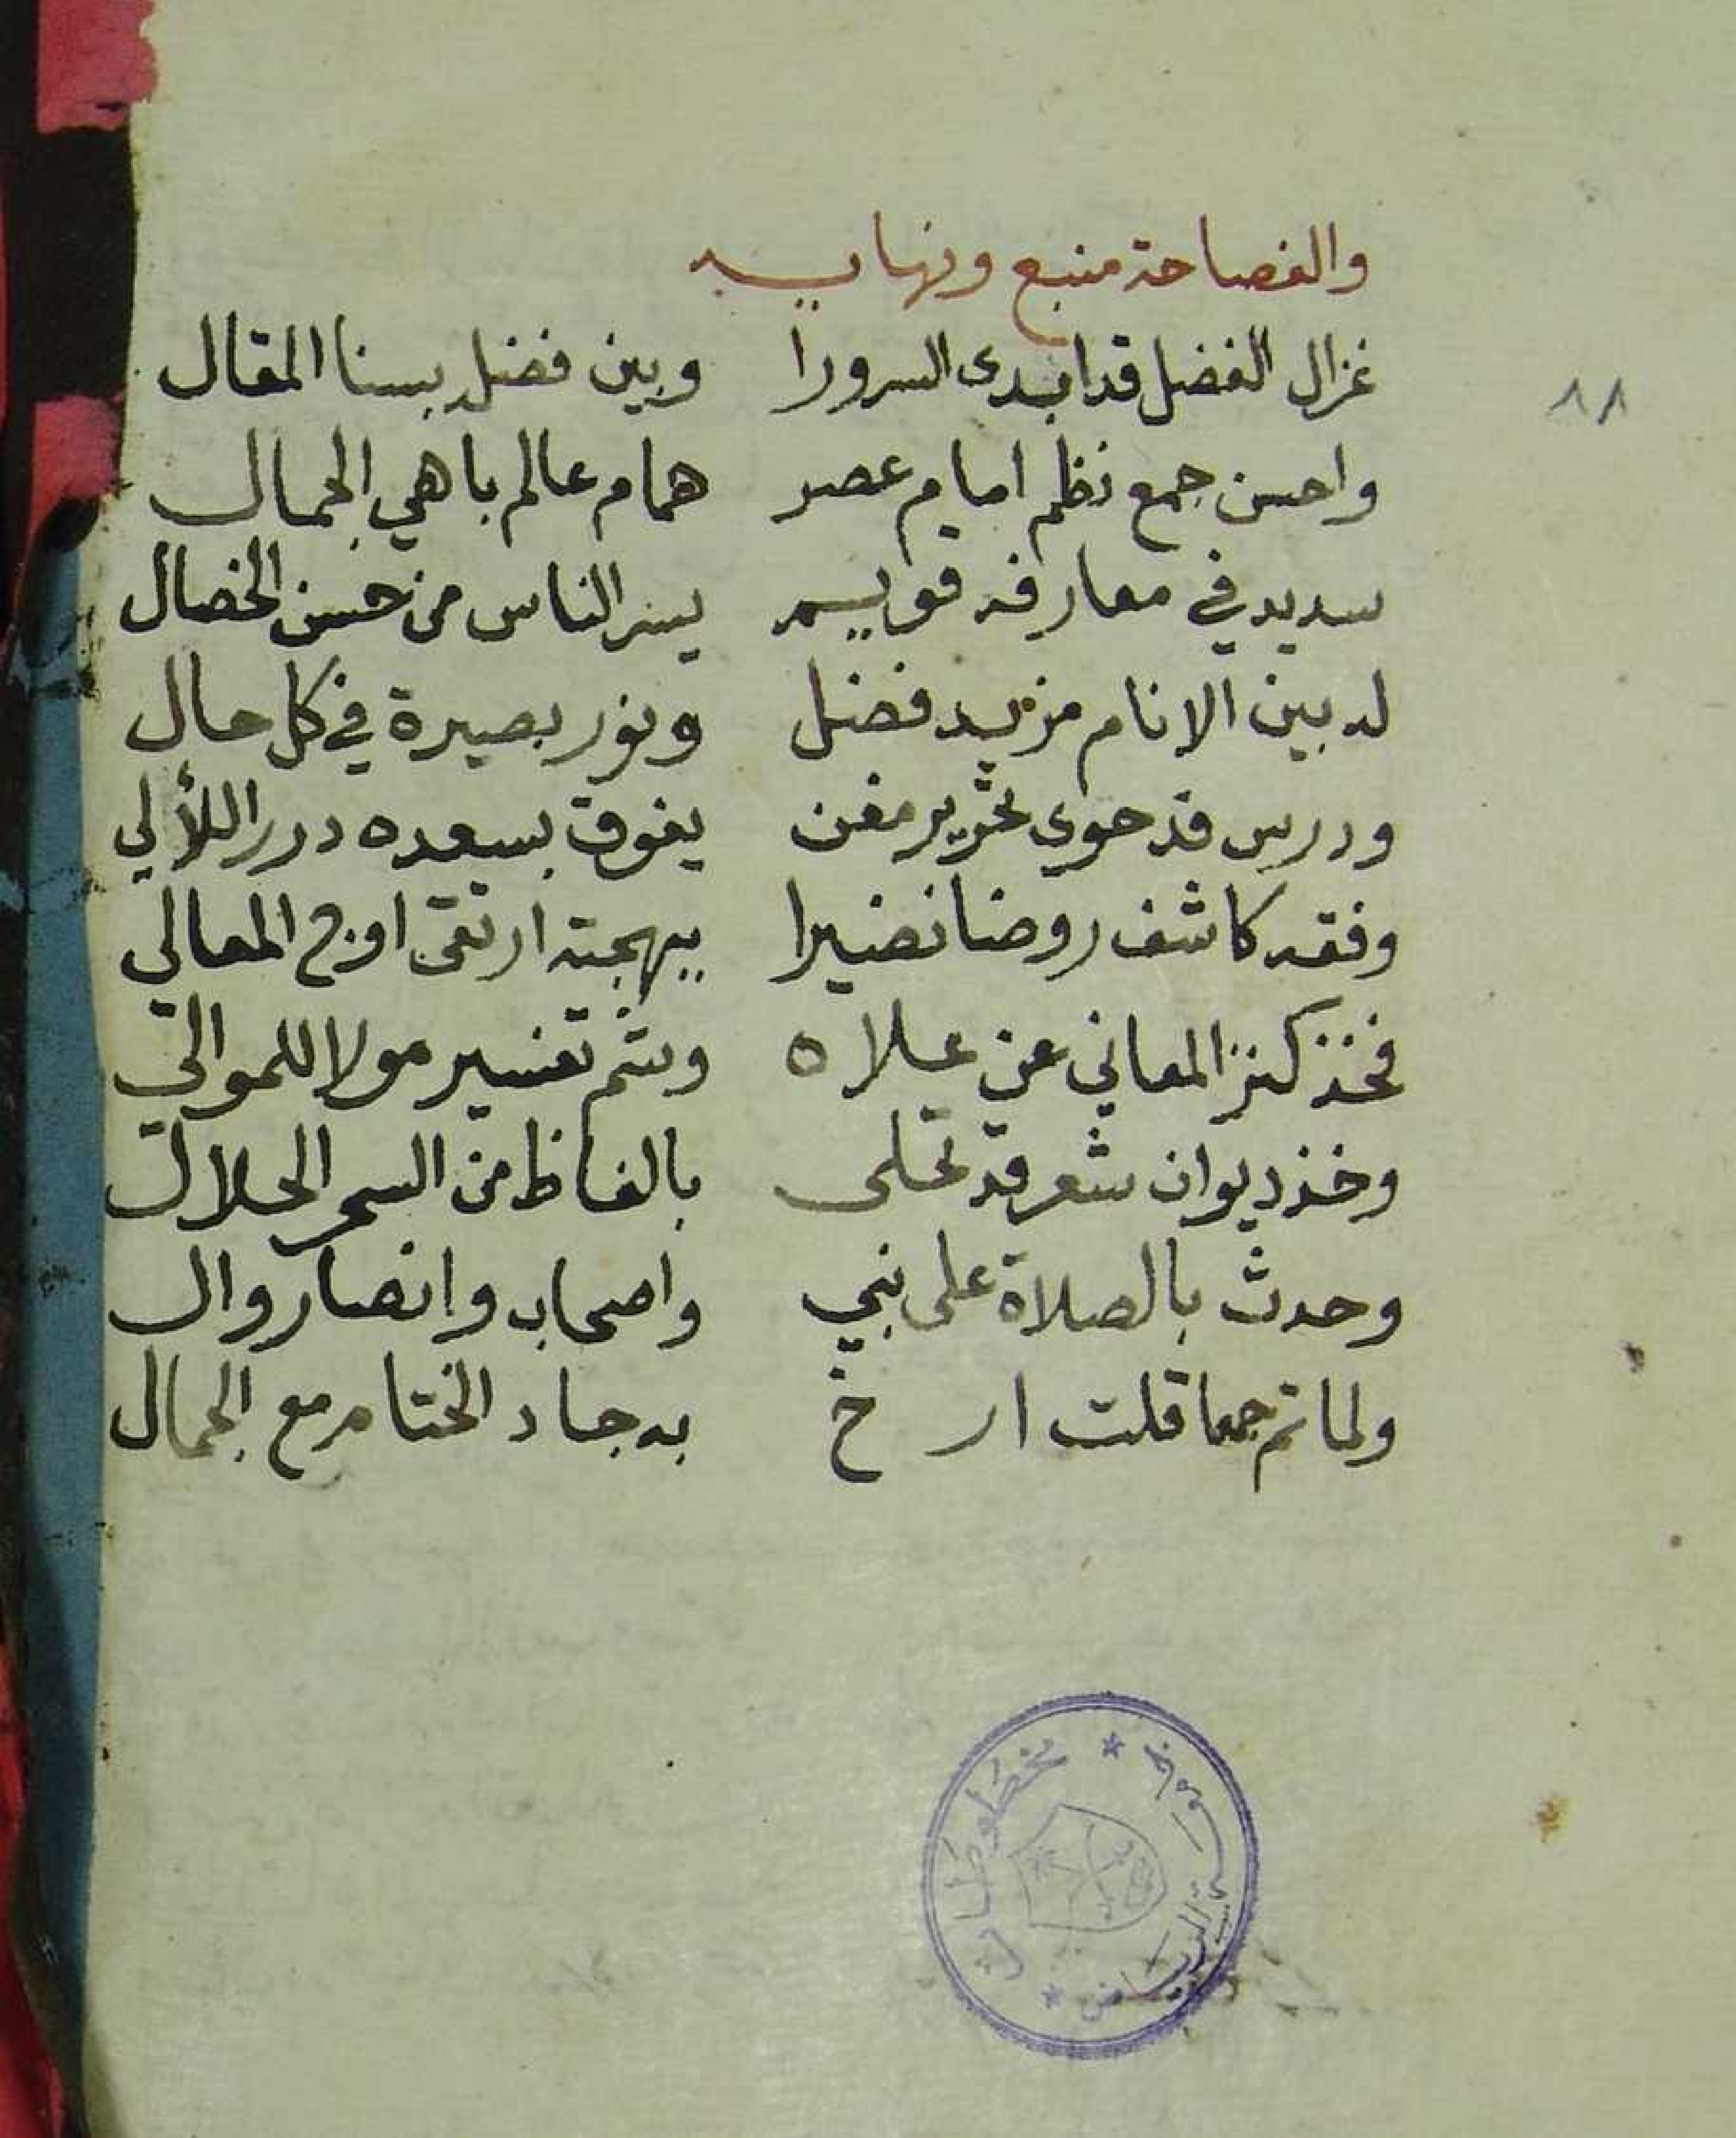 والفصاحة منبع ونهايه
غزال الفضل قد ابدى السرورا وبين فضله بسنا المقال
واحسن جمع نظم امام عصر همام عالم باهي الجمال
سديد في معارفه قويم يسر الناس من حسن الخصال
له بين الانام مزيد فضل ونور بصيرة في كل حال
ودرس قد حوى تحرير مغن يفوق بسعده درر اللألي
وفقه كاشف روضا نضيرا ببهجته ارتقى اوج المعالي
فخذ كنز المعاني عن علاه وتمم تفسير مولا للموالي
وخذ ديوان شعر قد تحلى بالفاظ من السحر الحلال
وحدث بالصلاة على نبي واصحاب وانصار وال
ولما تم جمعا قلت ارخ به جاد الختام مع الجمال
٨٨
مخطوطات
الرياض